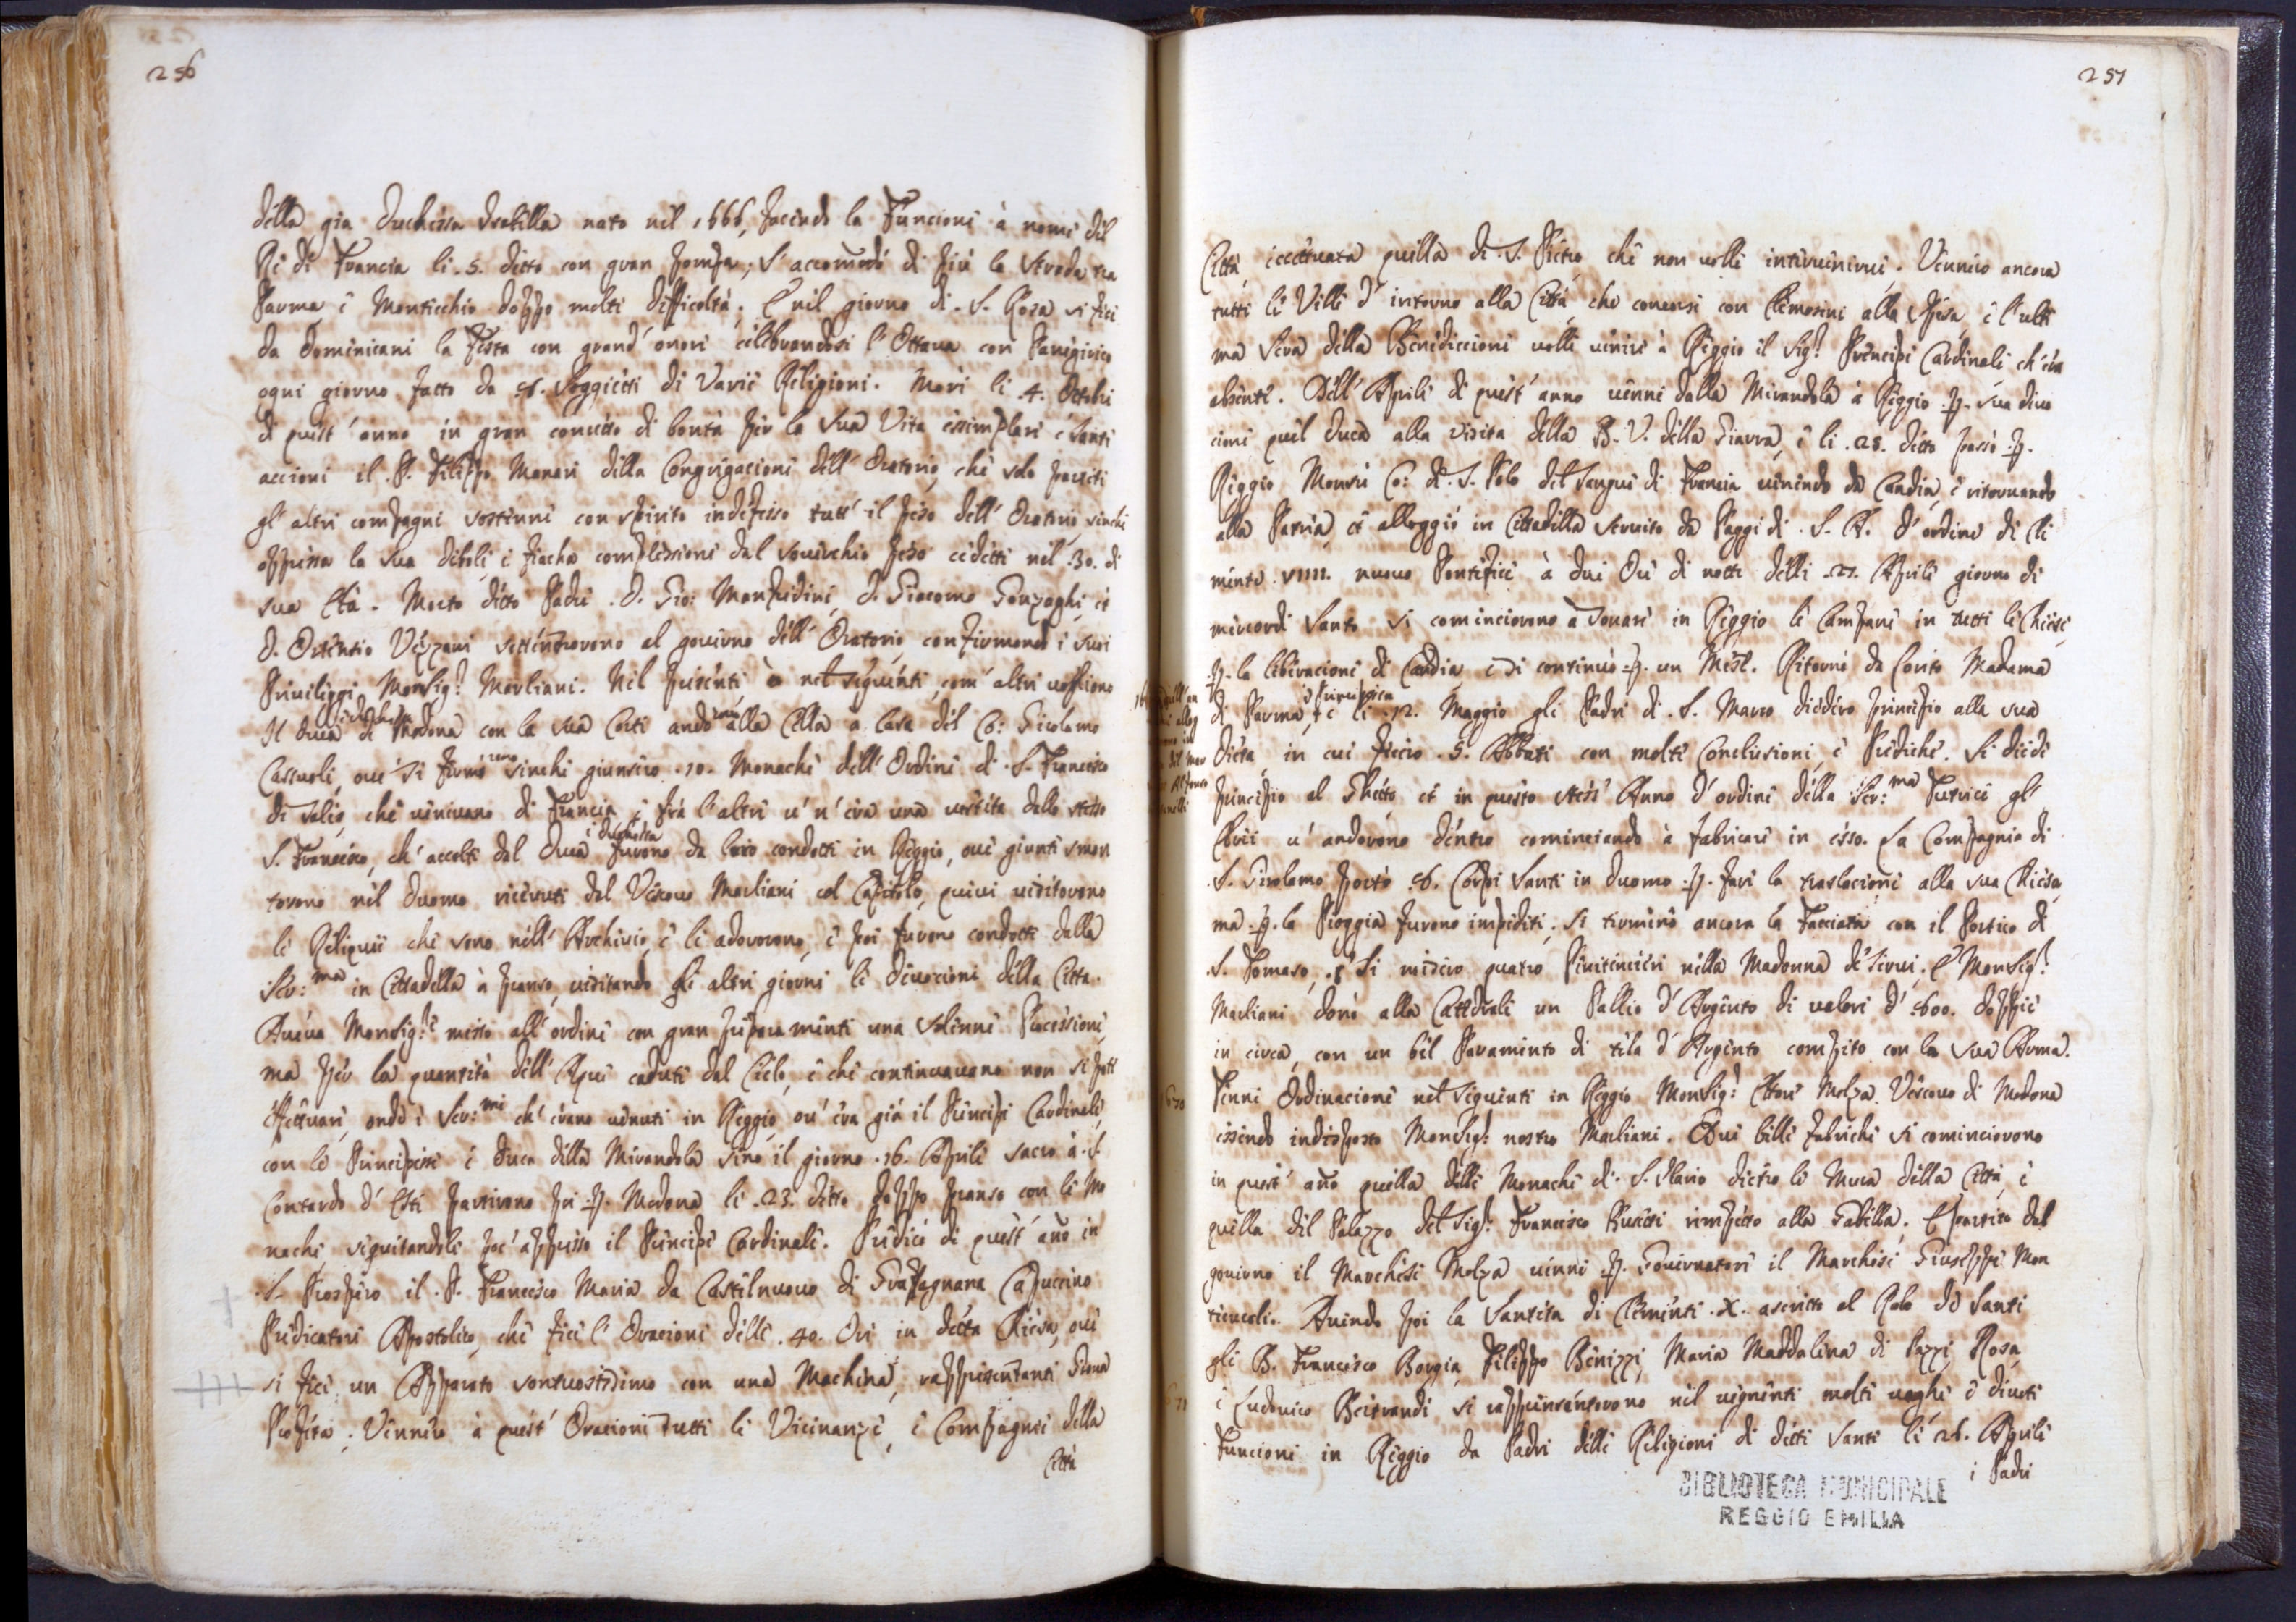 256
della gia Duchessa Isabella nato nel 1666, facendo la Funcione à nome del
Rè di Francia li .5. ditto con gran pompa; S'accomodò di più la Strada tra
Parma e Montecchio doppo molte difficoltà; E nel giorno di .S. Rosa si fece
da Dominicani la Festa con grand' onore celebrandosi l'Ottava con Panegirico
ogni giorno fatto da .8. Soggietti di Varie Religioni. Morì li .4. Ottobre
di quest' anno in gran concetto di bontà per la Sua Vita essimplare e Sante
accioni il .P. Filippo Manari della Congregacione dell' Oratorio, che solo
gl' altri compagni sostenne con spirito indefesso tutt' il peso dell' Oratorio, sinche
oppressa la Sua debole, e fiacha complessione dal soverchio peso cedette nel .30. di
sua Età. Morto ditto Padre .D. Gio: Manfredini, D. Giacomo Gonzaghi, et
D. Ortensio Vezzani settentrorono al governo dell' Oratorio, confirmando i suoi
Privileggi Monsig.r Marliani. Nel presente, ò nel seguente, com' altri vogliono
e Duchessa
Il Duca di Modona con la Sua Corte andò alla Cella a Casa del Co: Girolamo
Cassoli, ove si fermò sinche giunsero .10. Monache dell' Ordine di .S. Francesco
di Sales che venivano di Francia, e frà l'altre v' n' era una vestita dallo stesso
e Duchessa
S. Francesco, ch' accolte dal Duca furono da loro condotte in Reggio, ove giunte smon
torono nel Duomo ricevute dal Vescovo Marliani col Capitolo, quivi visitorono
le Reliquie che sono nell' Archivio, e le adororono, e poi furono condotte dalla
Ser:ma in Cittadella à pranso, visitando gli altri giorni le divocioni della Città.
Aveva Monsig.re messo all' ordine con gran preparamenti una Solenne Processione,
ma per la quantità dell' Aque cadute dal Cielo, e che continuavano non si potè
effettuare, onde i Ser:mi ch' erano venuti in Reggio, ov' era già il Principe Cardinale,
con le Principesse e Duca della Mirandola sino il giorno .16. Aprile sacro à .S.
Contardo d' Este partirono poi p. Modona li .23. ditto doppo pranso con le Mo
nache, seguitandole poc' appresso il Principe Cardinale. Predicò di quest' año in
.S. Prospero il .P. Francesco Maria da Castelnuovo di Grafagnana Capuccino
Predicatore Apostolico, che fece l' Oracione delle .40. Ore in detta Chiesa, ove
si fece un Apparato sontuosissimo con una Machina, rappresentante Giona
Profeta; Vennero à quest' Oracione tutte le Vicinanze, e Compagnie della
Città
257
Città eccettuata quella di .S. Pietro che non volle intervenirvi. Vennero ancora
tutte le Ville d' intorno alla Città, che concorse con Elemosine alla Spesa, e l'ulti
ma Sera della Benediccione volle venire à Reggio il Sig.r Principe Cardinale ch' era
absente. Dell' Aprile di quest' anno venne dalla Mirandola à Reggio p. sua divo
cione quel Duca alla visita della B. V. della Giarra, e li .28. ditto passò p.
Reggio Monsù Co: di .S. Polo del Sangue di Francia venendo da Candia, e ritornando
alla Patria, et alloggiò in Cittadella servito da Paggi di .S. A. d' ordine di Cle
mente .VIIII. nuovo Pontefice à due Ore di notte delli .27. Aprile giorno di
mercordi Santo si cominciorono à Sonare in Reggio le Campane in tutte le Chiese,
p. la liberacione di Candia, e si continuò p. un Mese. Ritornò da Corte Madama
e Principessa
di Parma, e li .12. Maggio gli Padri di .S. Marco diedero principio alla sua
Dieta, in cui fecero .5. Abbati con molte Conclusioni, e Prediche. Si diede
principio al Ghetto, et in questo stess' Anno d' ordine della Ser:ma gl'
Ebrei v' andorono dentro cominciando à fabricare in esso. La Compagnia di
.S. Girolamo portò .6. Corpi Santi in Duomo p. fare la traslacione alla sua Chiesa,
ma p. la Pioggia furono impediti; Si terminò ancora la Facciata con il Portico di
.S. Tomaso, e Si misero quatro Penitencieri nella Madonna de' Servi; E Monsig.r
Marliani donò alla Cattedrale un Pallio d' Argento di valore d' 600. doppie
in circa, con un bel Paramento di tela d' Argento compito con la sua Arma.
Tenne Ordinacione nel seguente in Reggio Monsig.r Ettore Molza Vescovo di Modona
essendo indisposto Monsig.r nostro Marliani. Due belle fabriche si cominciorono
in quest' año quella delle Monache di .S. Ilario dietro le Mura della Città, e
quella del Palazzo del Sig.r Francesco Busetti rimpetto alla Gabella. E partito dal
governo il Marchese Molza venne p. Governatore il Marchese Giuseppe Mon
tecucoli. Avendo poi la Santità di Clemente .X. ascritto al Rolo de Santi
gli B. Francesco Borgia, Filippo Benizzi, Maria Maddalena di Pazzi, Rosa,
e Ludovico Beltrandi si rappresentorono nel vegnente molte vaghe e divote
Funcioni in Reggio da Padri delle Religioni di detti Santi li 26. Aprile
i Padri
BIBLIOTECA MUNICIPALE
REGGIO EMILIA